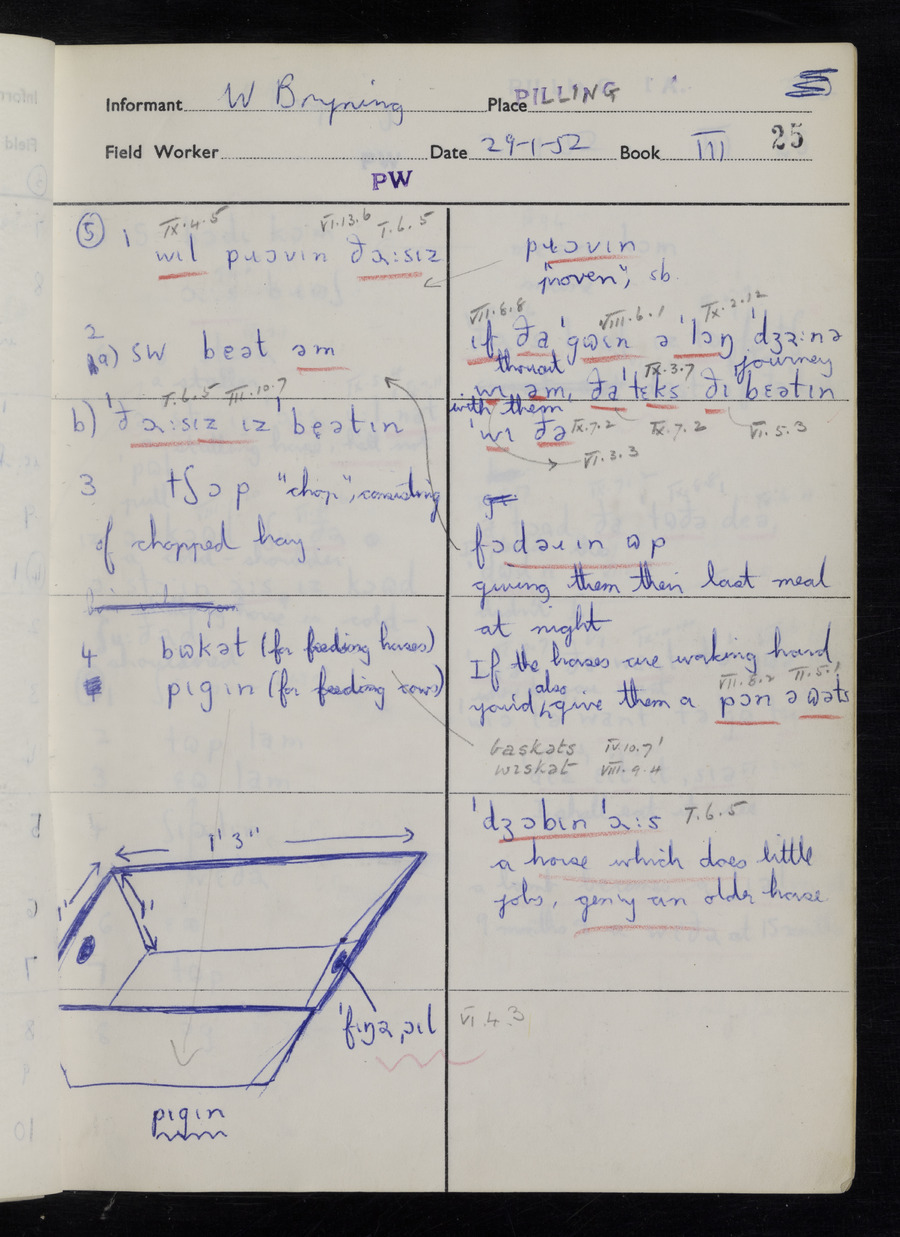 Informant W Bryning Place PILLING
Field Worker Date 29-1-52 Book III 25
PW
IX.4.5 VI.13.6 T.6.5
5 1 wɪl pɹɔvɪn ðɑːsɪz
2
a) SW bɛət əm
T.6.5 III.10.7
b) 'ðɑːsɪz ɪz 'bɛətɪn
3 tʃɔp "chop", consisting
of chopped hay
4 bɷkət (for feeding horses)
pɪgɪn (for feeding cows)
1' 3"
1'
1'
'fɪŋəˌɔɪl
pɪgɪn
pɹɔvɪn
"proven", sb.
VII.8.8 VIII.6.1 IX.2.12
ɪf ða 'gɷɪn ə 'lɔŋ 'dʒəːnə
journey
thought IX.3.7
wɪ əm, ða 'tɛks ðɪ bɛətɪn
with them
'wɪ ðə IX.7.2 IX.7.2 VI.5.3
VI.3.3
fɔdəɹɪn ɷp
giving them their last meal
at night
If the horses are working hard
VII.8.2 II.5.1
you'd also give them a pɔn ə wɷts
baskəts IV.10.7
wɪskət VIII.9.4
'dʒɔbɪn 'ɔːs T.6.5
a horse which does little
jobs, gen'y an older horse
VI.4.3